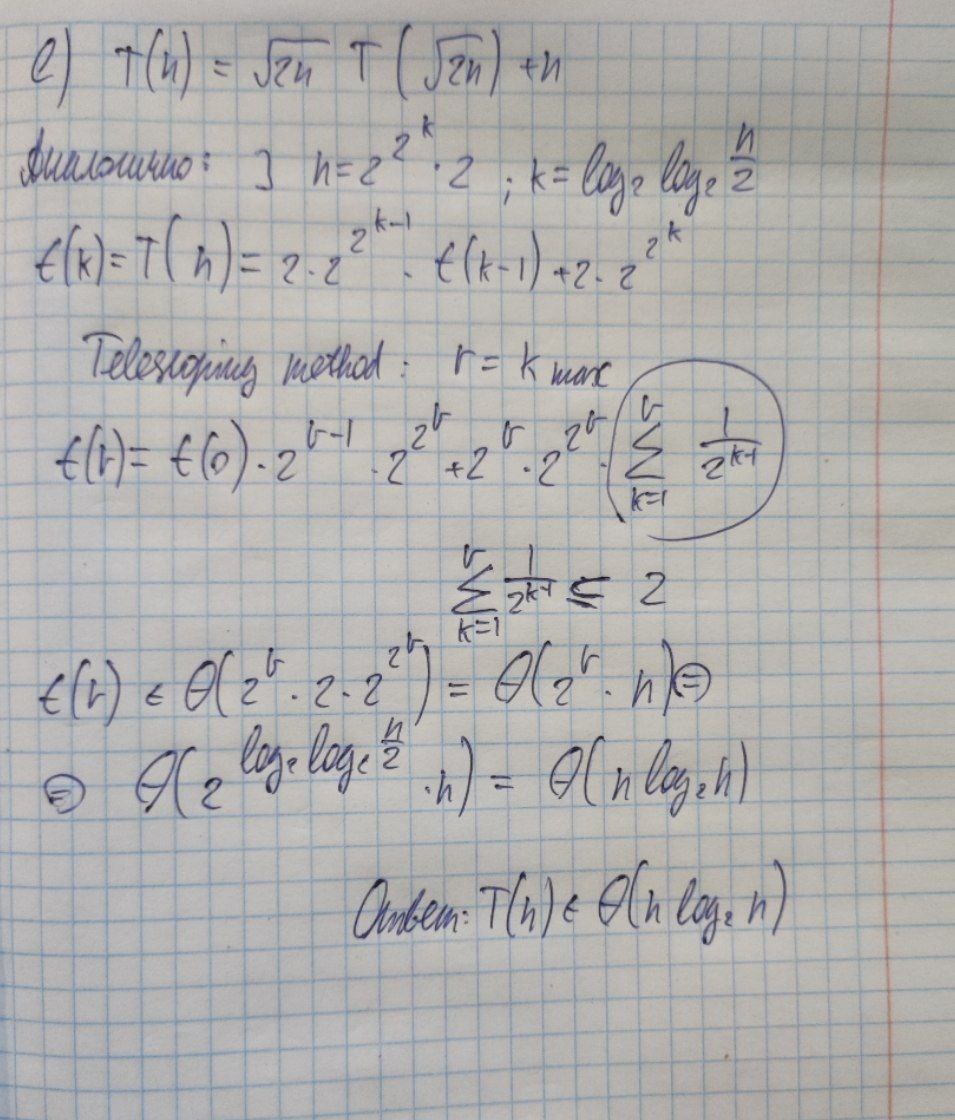 e) T(n) = √2n T(√2n) + n
Аналогично: ∃ n = 2^{2^k} · 2 ; k = log₂ log₂ n/2
t(k) = T(n) = 2 · 2^{2^{k-1}} · t(k-1) + 2 · 2^{2^k}
Telescoping method: r = k max
t(r) = t(0) · 2^{r-1} · 2^{2^r} + 2^r · 2^{2^r} · ∑_{k=1}^{r} 1/2^{k-1}
∑_{k=1}^{r} 1/2^{k-1} ≤ 2
t(r) ∈ θ(2^r · 2 · 2^{2^r}) = θ(2^r · n) ⊜
⊜ θ(2^{log₂ log₂ n/2} · n) = θ(n log₂ n)
Ответ: T(n) ∈ θ(n log₂ n)